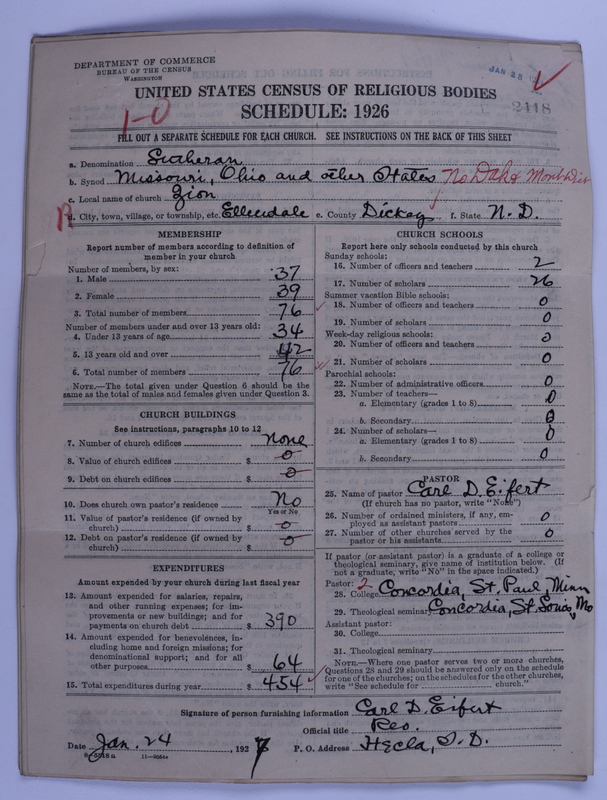 DEPARTMENT OF COMMERCE
BUREAU OF THE CENSUS
WASHINGTON
JAN 28
UNITED STATES CENSUS OF RELIGIOUS BODIES
1-0
SCHEDULE: 1926
2418
FILL OUT A SEPARATE SCHEDULE FOR EACH CHURCH. SEE INSTRUCTIONS ON THE BACK OF THIS SHEET
a. Denomination Lutheran
b. Synod Missouri, Ohio and other States No Dak & Mont Dist
c. Local name of church Zion
R
d. City, town, village, or township, etc. Ellendale e. County Dickey f. State N. D.
MEMBERSHIP
Report number of members according to definition of
member in your church
Number of members, by sex:
1. Male 37
2. Female 39
3. Total number of members 76
Number of members under and over 13 years old:
4. Under 13 years of age 34
5. 13 years old and over 42
6. Total number of members 76
NOTE.—The total given under Question 6 should be the
same as the total of males and females given under Question 3.
CHURCH BUILDINGS
See instructions, paragraphs 10 to 12
7. Number of church edifices none
8. Value of church edifices $ 0
9. Debt on church edifices $ 0
10. Does church own pastor's residence? No
Yes or No
11. Value of pastor's residence (if owned by
church) $ 0
12. Debt on pastor's residence (if owned by
church) $ 0
EXPENDITURES
Amount expended by your church during last fiscal year
13. Amount expended for salaries, repairs,
and other running expenses; for im-
provements or new buildings; and for
payments on church debt $ 390
14. Amount expended for benevolences, in-
cluding home and foreign missions; for
denominational support; and for all
other purposes $ 64
15. Total expenditures during year $ 454
CHURCH SCHOOLS
Report here only schools conducted by this church
Sunday schools:
16. Number of officers and teachers 2
17. Number of scholars 26
Summer vacation Bible schools:
18. Number of officers and teachers 0
19. Number of scholars 0
Week-day religious schools:
20. Number of officers and teachers 0
21. Number of scholars 0
Parochial schools:
22. Number of administrative officers 0
23. Number of teachers—
a. Elementary (grades 1 to 8) 0
b. Secondary 0
24. Number of scholars—
a. Elementary (grades 1 to 8) 0
b. Secondary 0
PASTOR
25. Name of pastor Carl D. Eifert
(If church has no pastor, write "None")
26. Number of ordained ministers, if any, em-
ployed as assistant pastors 0
27. Number of other churches served by the
pastor or his assistants 0
If pastor (or assistant pastor) is a graduate of a college or
theological seminary, give name of institution below. (If
not a graduate, write "No" in the space indicated.)
Pastor: 2
28. College Concordia, St. Paul, Minn
29. Theological seminary Concordia, St. Louis, Mo
Assistant pastor:
30. College
31. Theological seminary
NOTE.—Where one pastor serves two or more churches,
Questions 28 and 29 should be answered only on the schedule
for one of the churches; on the schedules for the other churches,
write "See schedule for church."
Signature of person furnishing information Carl D. Eifert
Official title Rev.
Date Jan. 24, 1927 P. O. Address Hecla, S. D.